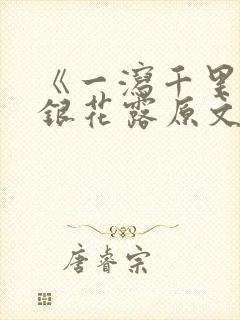 《一泻千里
银花露原文
唐睿宗